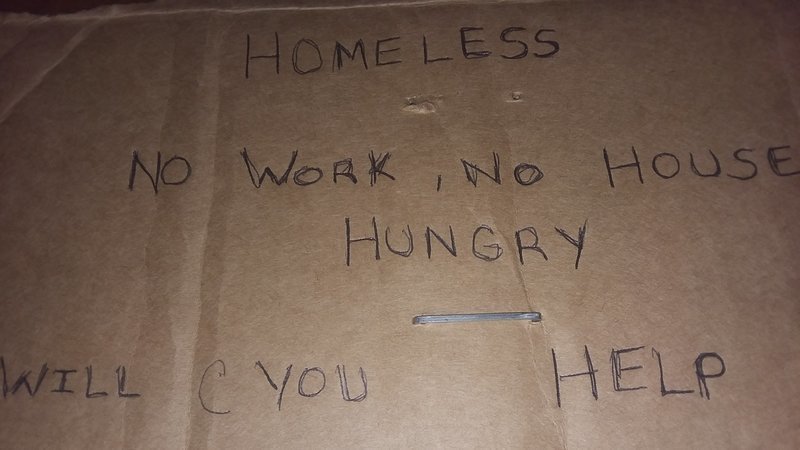 HOMELESS
NO WORK, NO HOUSE
HUNGRY
WILL YOU HELP